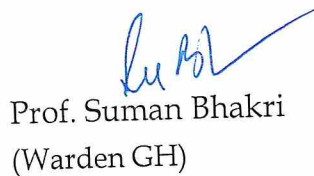 Prof. Suman Bhakri
(Warden GH)